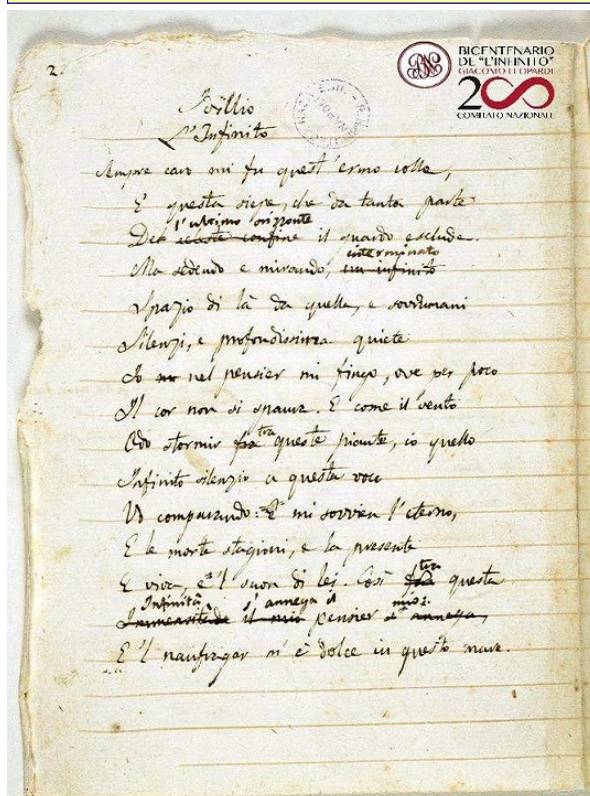 BICENTENARIO
DE "L'INFINITO"
GIACOMO LEOPARDI
200
COMITATO NAZIONALE
BN
2.
Idillio
L'Infinito
Sempre caro mi fu quest'ermo colle,
E questa siepe, che da tanta parte
l'ultimo orizonte
Del celeste confine il guardo esclude.
interminato
Ma sedendo e mirando, un infinito
Spazio di là da quella, e sovrumani
Silenzi, e profondissima quiete
Io nel pensier mi fingo, ove per poco
Il cor non si spaura. E come il vento
tra
Odo stormir fra queste piante, io quello
Infinito silenzio a questa voce
Vo comparando: E mi sovvien l'eterno,
E le morte stagioni, e la presente
tra
E viva, e 'l suon di lei. Così fra questa
Infinità s'annega il mio:
Immensitade il mio pensier s'annega,
E 'l naufragar m'è dolce in questo mare.